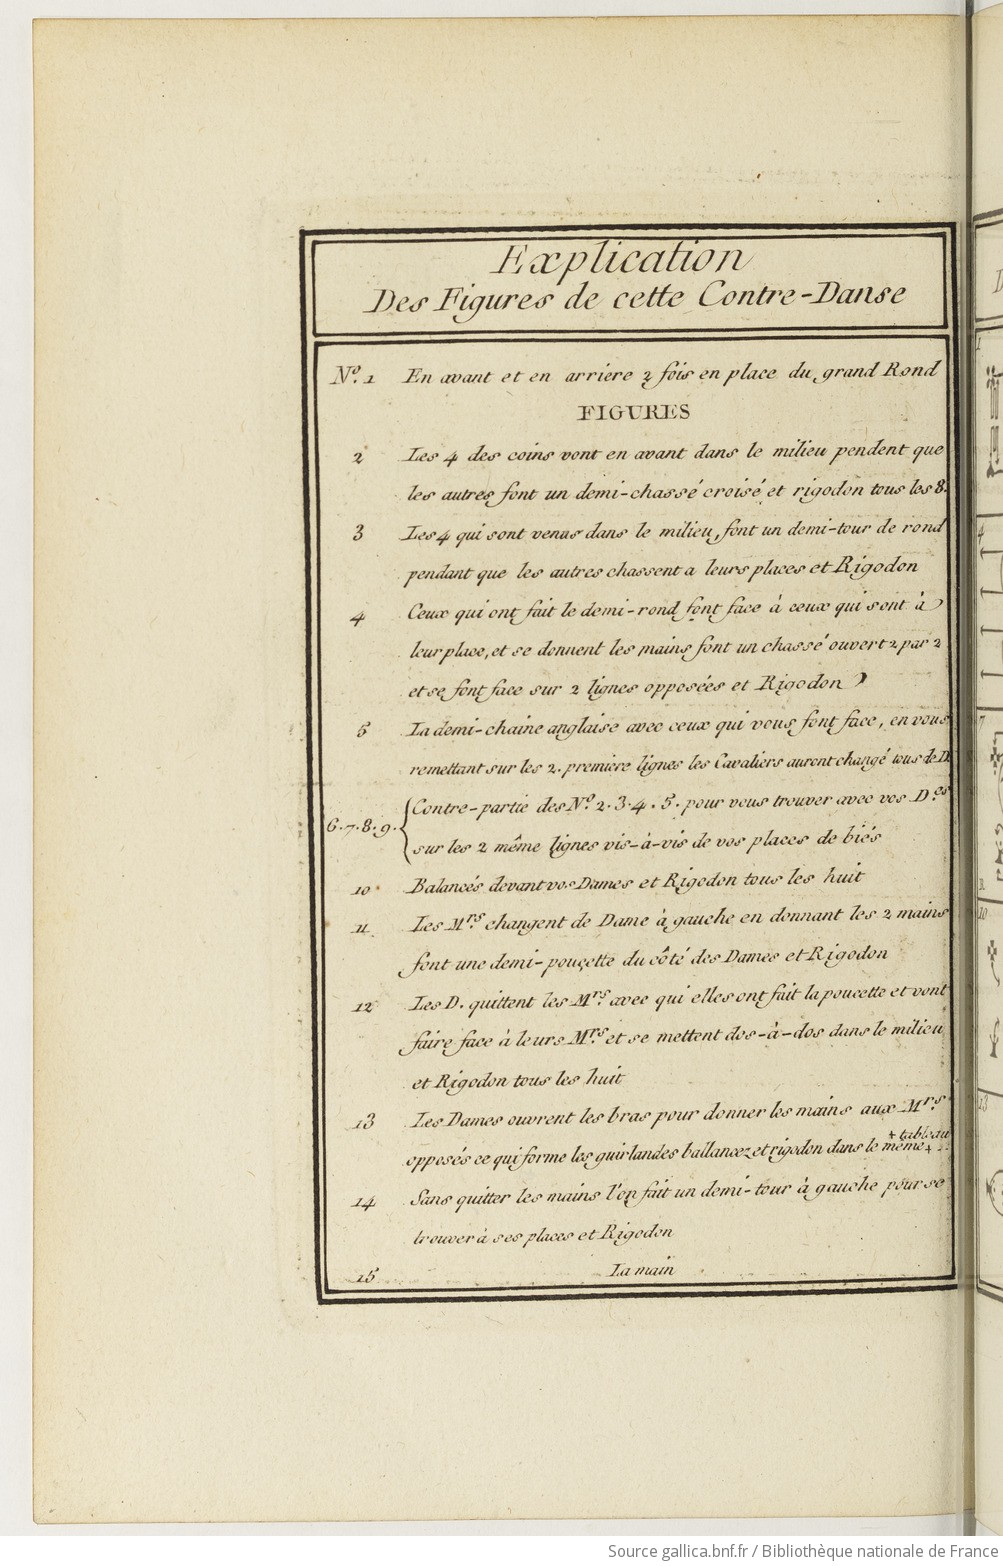 Explication
Des Figures de cette Contre-Danse
N.º 1 En avant et en arriere 2 fois en place du grand Rond
FIGURES
2 Les 4 des coins vont en avant dans le milieu pendent que
les autres font un demi-chassé croisé et rigodon tous les 8.
3 Les 4 qui sont venus dans le milieu, font un demi-tour de rond
pendant que les autres chassent a leurs places et Rigodon
4 Ceux qui ont fait le demi-rond font face à ceux qui sont à
leur place, et se donnent les mains font un chassé ouvert 2 par 2
et se font face sur 2 lignes opposées et Rigodon
5 La demi-chaine anglaise avec ceux qui vous font face, en vous
remettant sur les 2. premiere lignes les Cavaliers auront changé tous de D.
6.7.8.9. Contre-partie des N.º 2.3.4.5. pour vous trouver avec vos D.es
sur les 2 même lignes vis-à-vis de vos places de biés
10 Balancés devant vos Dames et Rigodon tous les huit
11 Les M.rs changent de Dame à gauche en donnant les 2 mains
font une demi-pouçette du côté des Dames et Rigodon
12 Les D. quittent les M.rs avec qui elles ont fait la poucette et vont
faire face à leurs M.rs et se mettent dos-à-dos dans le milieu
et Rigodon tous les huit
13 Les Dames ouvrent les bras pour donner les mains aux M.rs
+ tableau
opposés ce qui forme les guirlandes ballancez et rigodon dans le même +
14 Sans quitter les mains l'on fait un demi-tour à gauche pour se
trouver à ses places et Rigodon
15 La main
1
4
7
10
13
Source gallica.bnf.fr / Bibliothèque nationale de France